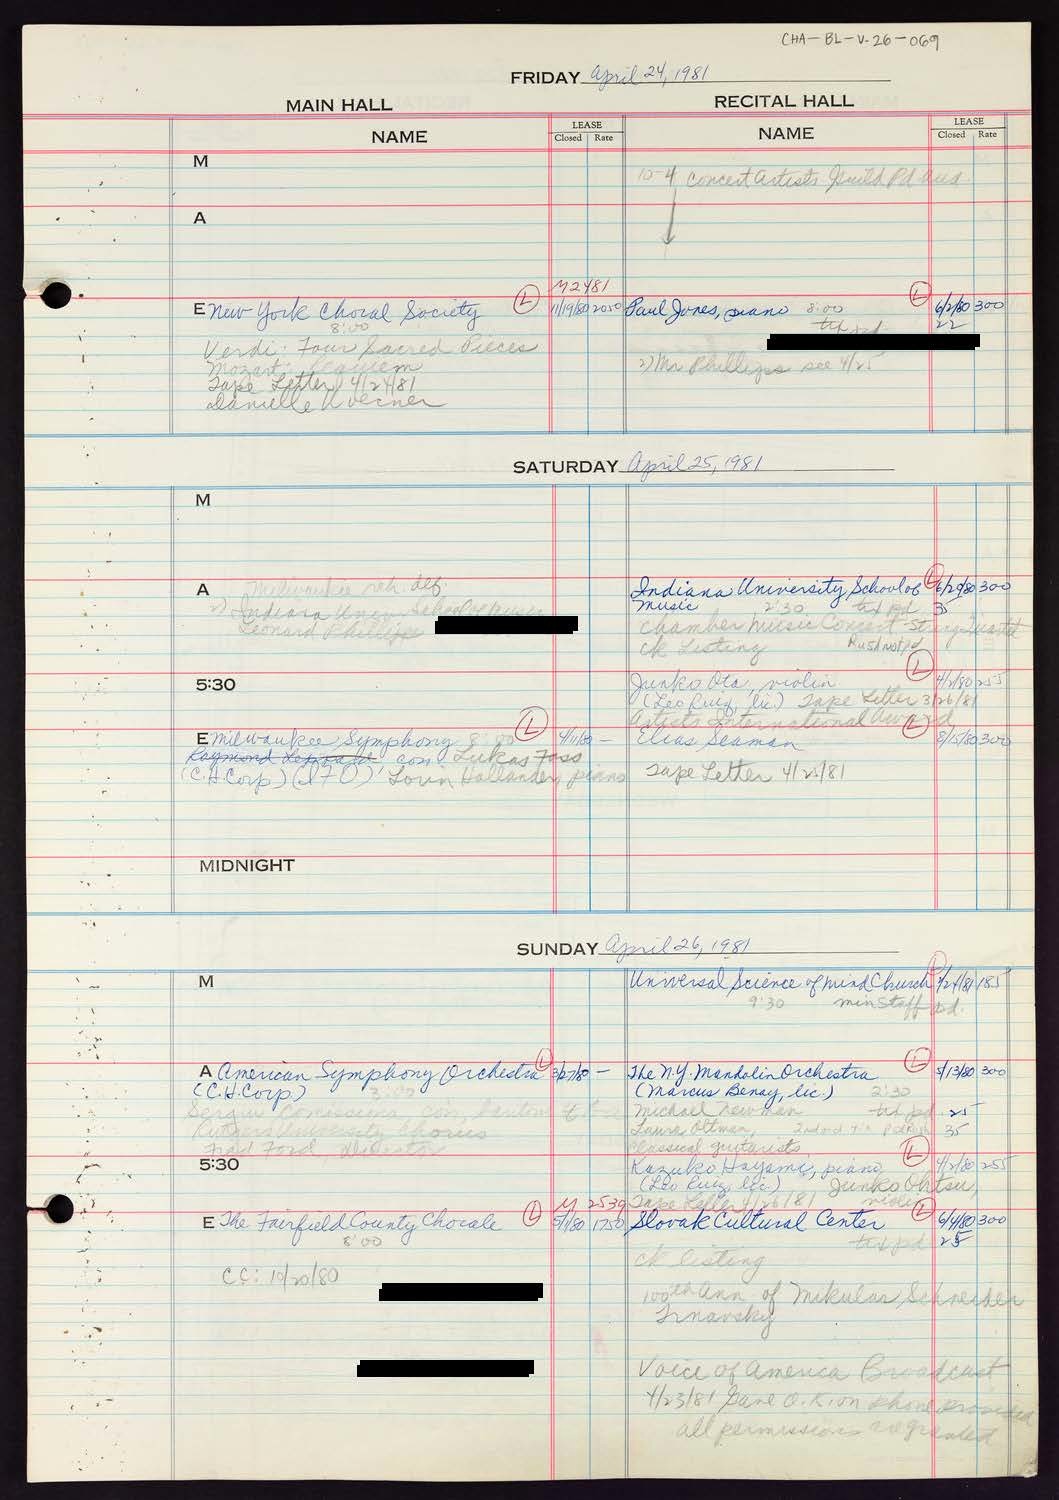 CHA-BL-V-26-069
FRIDAY April 24, 1981
MAIN HALL
RECITAL HALL
NAME
LEASE
Closed Rate
NAME
LEASE
Closed Rate
M
10-4 Concert Artists Guild Pd aud
A
M2481
E New York Choral Society L 11/19/80 2050
8:00
Verdi: Four Sacred Pieces
Mozart: Requiem
Tape Letter 4/24/81
Danielle Woerner
Paul Jones, piano 8:00 L 6/2/80 300
txs pd 22
2) Mr Phillips see 4/25
SATURDAY April 25, 1981
M
A Milwaukee reh. def.
2) Indiana Univ. School of Music
Leonard Phillips
Indiana University School of L 6/20/80 300
Music 2:30 txs pd 35
Chamber Music Concert - String Quartet
ck listing
5:30
Junko Ota, violin L 4/2/80 255
(Leo Ruiz, lic.) Tape Letter 3/26/81
Artists International Award
E Milwaukee Symphony 8:00 L 4/11/80 -
Raymond Leppard con Lukas Foss
(C.H.Corp) Lorin Hollander, piano
Elias Seaman L 8/15/80 300
Tape Letter 4/25/81
MIDNIGHT
SUNDAY April 26, 1981
M
Universal Science of Mind Church L 2/24/81 185
9:30 min Staff pd.
A American Symphony Orchestra L 3/27/80 -
(C.H.Corp.) 3:00
Sergiu Comissiona, con,
Rutgers University Chorus
The N.Y. Mandolin Orchestra L 5/13/80 300
(Marcus Benay, lic.) 2:30
Michael Newman txs pd. 25
Laura Oltman, 35
classical guitarists
5:30
Kazuko Hayami, piano L 4/2/80 255
(Leo Ruiz, lic) Junko Ohtsu,
Tape Letter 4/26/81 violin
M 2539
E The Fairfield County Chorale L 5/1/80 1750
8:00
C.C: 10/20/80
Slovak Cultural Center L 6/4/80 300
txs pd 25
ck listing
100th Ann of Mikulas Schneider
Trnavsky
Voice of America Broadcast
4/23/81 Gave O.K. on phone provided
all permissions are granted